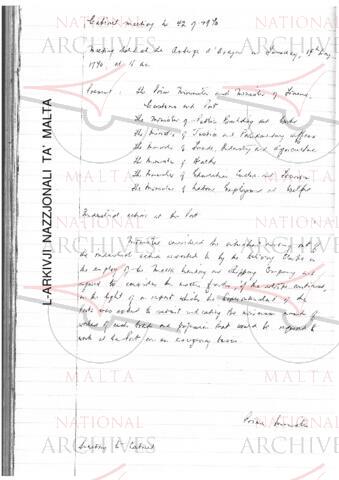 Cabinet meeting No 42 of 1970
Meeting held at the Auberge d'Aragon on Tuesday, 19th May
1970, at 10 a.m.
Present : The Prime Minister and Minister of Finance,
Customs and Port
The Minister of Public Building and Works
The Minister of Justice and Parliamentary Affairs
The Minister of Trade, Industry and Agriculture
The Minister of Health
The Minister of Education, Culture and Tourism
The Minister of Labour, Employment and Welfare
Industrial action at the Port
Ministers considered the situation arising out of
the industrial action resorted to by the Delivery Clerks in
the employ of the Malta Landing and Shipping Company and
agreed to consider the matter further, if the action continued,
in the light of a report which the Superintendent of the
Ports was asked to submit indicating the minimum number of
workers of each trade and profession that would be required to
work at the Port on an emergency basis.
Prime Minister
Secretary to Cabinet
L-ARKIVJI NAZZJONALI TA' MALTA
NATIONAL
ARCHIVES
MALTA